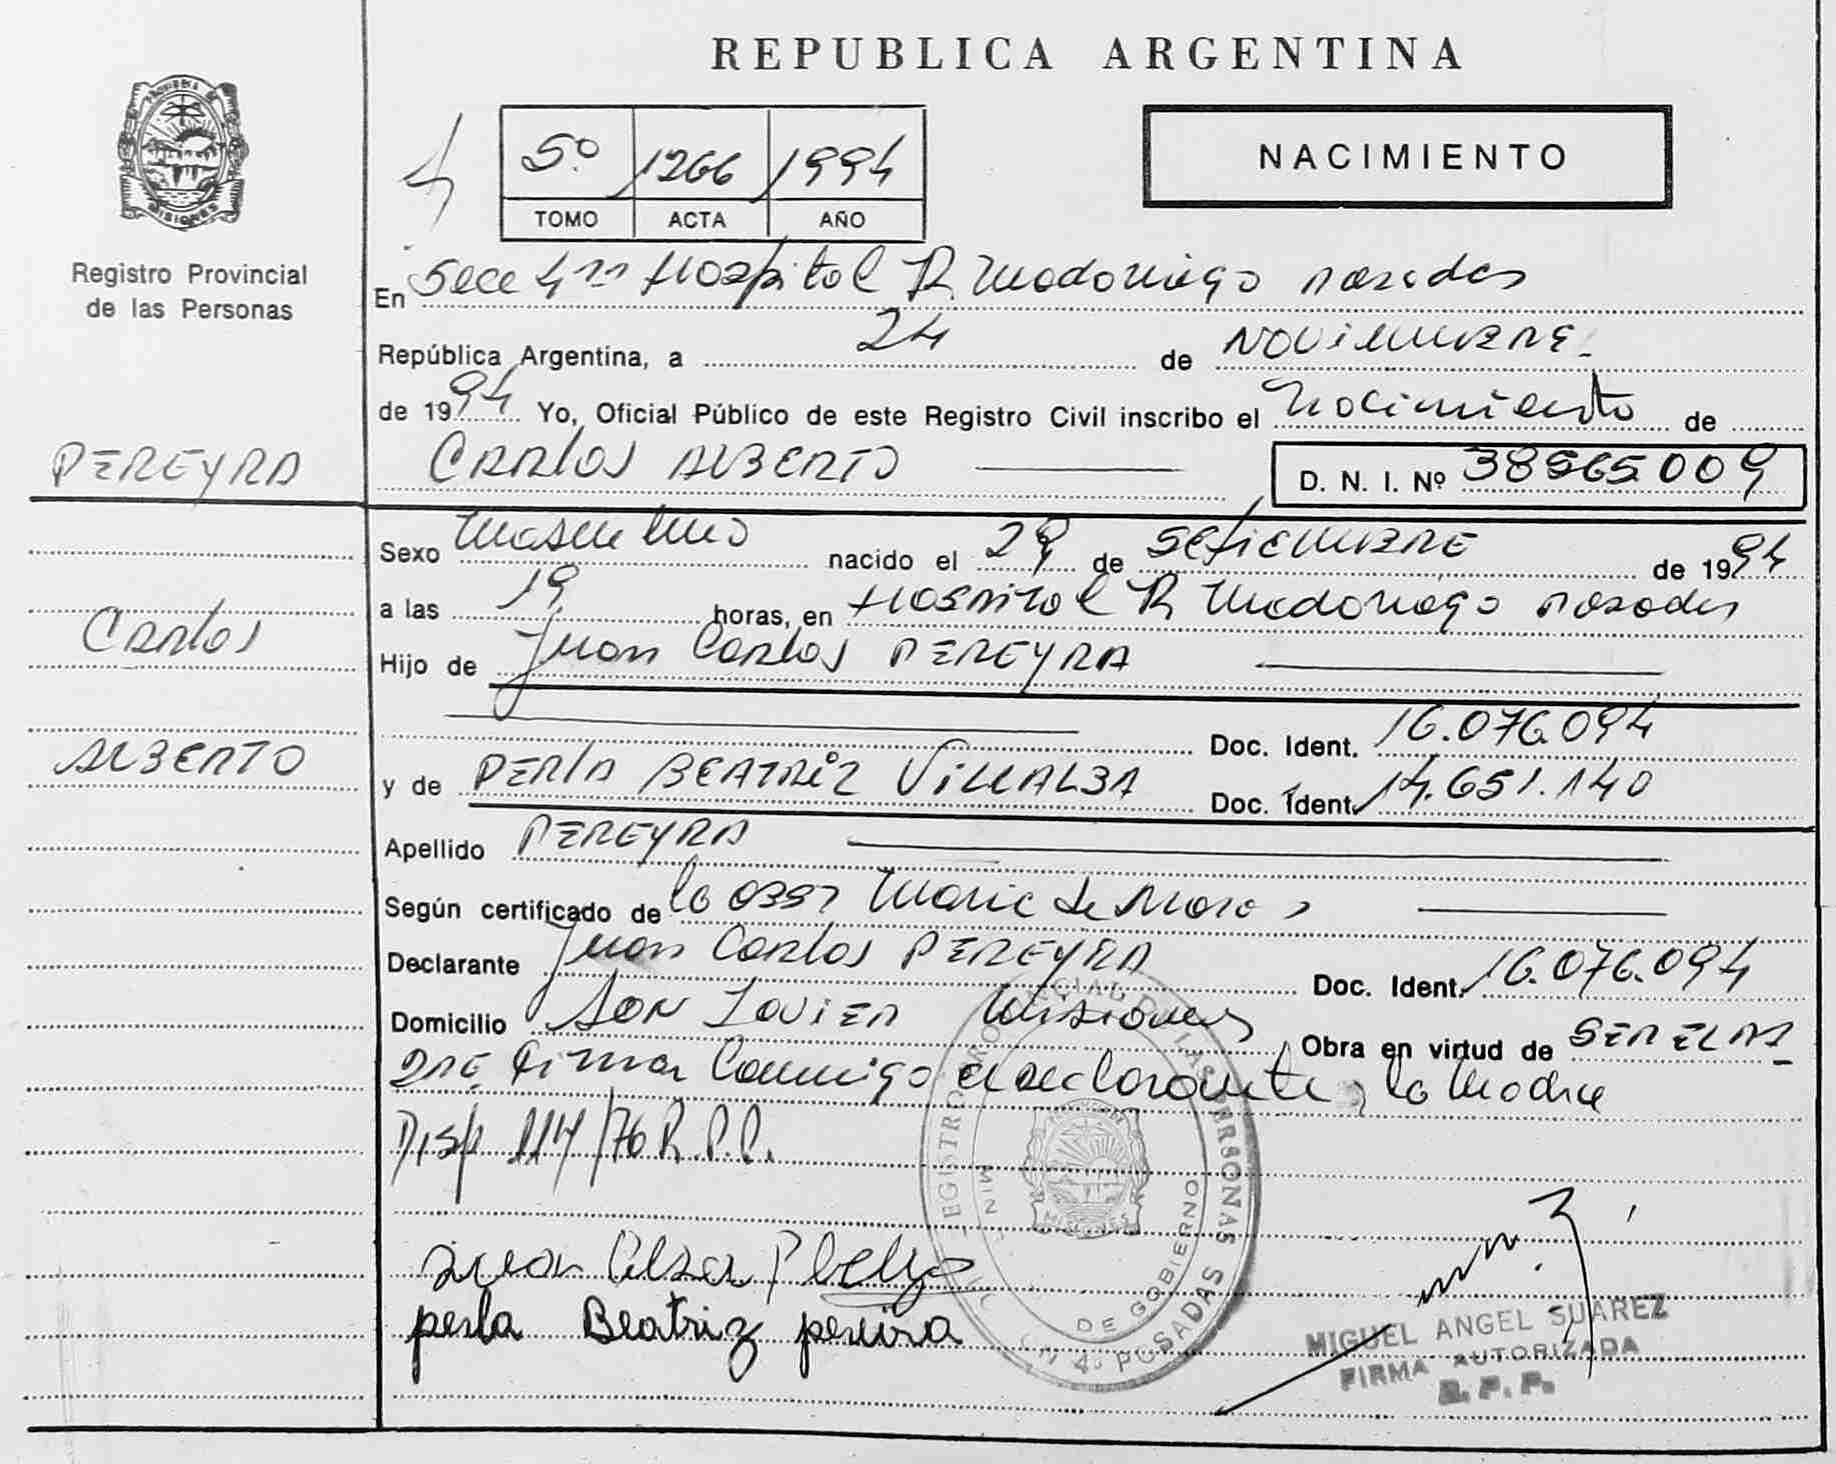 REPUBLICA ARGENTINA
NACIMIENTO
5º 1266 1994
TOMO ACTA AÑO
MISIONES
Registro Provincial
de las Personas
En Secc 4ta Hospital R. Madariaga Posadas
República Argentina, a 24 de NOVIEMBRE
de 1994 Yo, Oficial Público de este Registro Civil inscribo el Nacimiento de
PEREYRA
CARLOS ALBERTO
D. N. I. Nº 38565009
Sexo Masculino nacido el 29 de SETIEMBRE de 1994
a las 19 horas, en Hospital R Madariaga Posadas
Carlos
Hijo de Juan Carlos PEREYRA
Doc. Ident. 16.076.094
ALBERTO
y de PERLA BEATRIZ VILLALBA Doc. Ident. 14.651.140
Apellido PEREYRA
Según certificado de la Maria de
Declarante Juan Carlos PEREYRA Doc. Ident. 16.076.094
Domicilio San Javier Misiones Obra en virtud de SER EL
Firma Conmigo el declarante, la Madre
Disp 114/76 R.P.P.
REGISTRO PROVINCIAL DE LAS PERSONAS
DE GOBIERNO
MISIONES
POSADAS
perla Beatriz pereira
MIGUEL ANGEL SUAREZ
FIRMA AUTORIZADA
R. P. P.